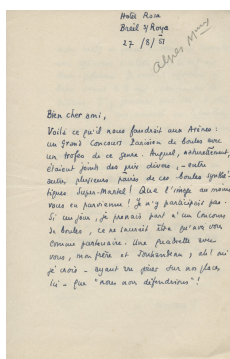 Hotel Roya
Breil s/Roya
27 /8/ 51
Alpes Mmes
Bien cher ami,
Voilà ce qu'il nous faudrait aux Arènes :
un Grand Concours Parisien de boules avec
un trofeo de ce genre. Auquel, naturellement,
étaient joints des prix divers, - entre
autres plusieurs paires de ces boules synthé-
tiques Super-Martel ! Que l'image au moins
vous en parvienne ! Je n'y participais pas.
Si un jour, je prenais part à un Concours
de boules, ce ne saurait être qu'avec vous
comme partenaire. Une quadrette avec
vous, mon frère et ah ! oui
je crois - ayant vu jouer sur nos places
là - que "nous nous défendrions" !